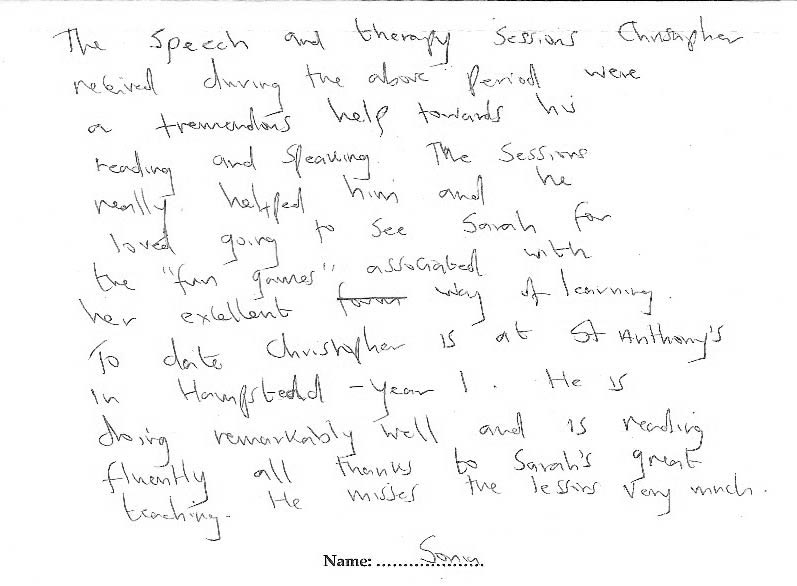 The Speech and therapy Sessions Christopher
received during the above period were
a tremendous help towards his
reading and speaking. The Sessions
really helped him and he
loved going to see Sarah for
the "fun games" associated with
her excellent form way of learning.
To date Christopher is at St Anthony's
in Hampstead - year 1. He is
doing remarkably well and is reading
fluently all thanks to Sarah's great
teaching. He misses the lessons very much.
Name: ........................